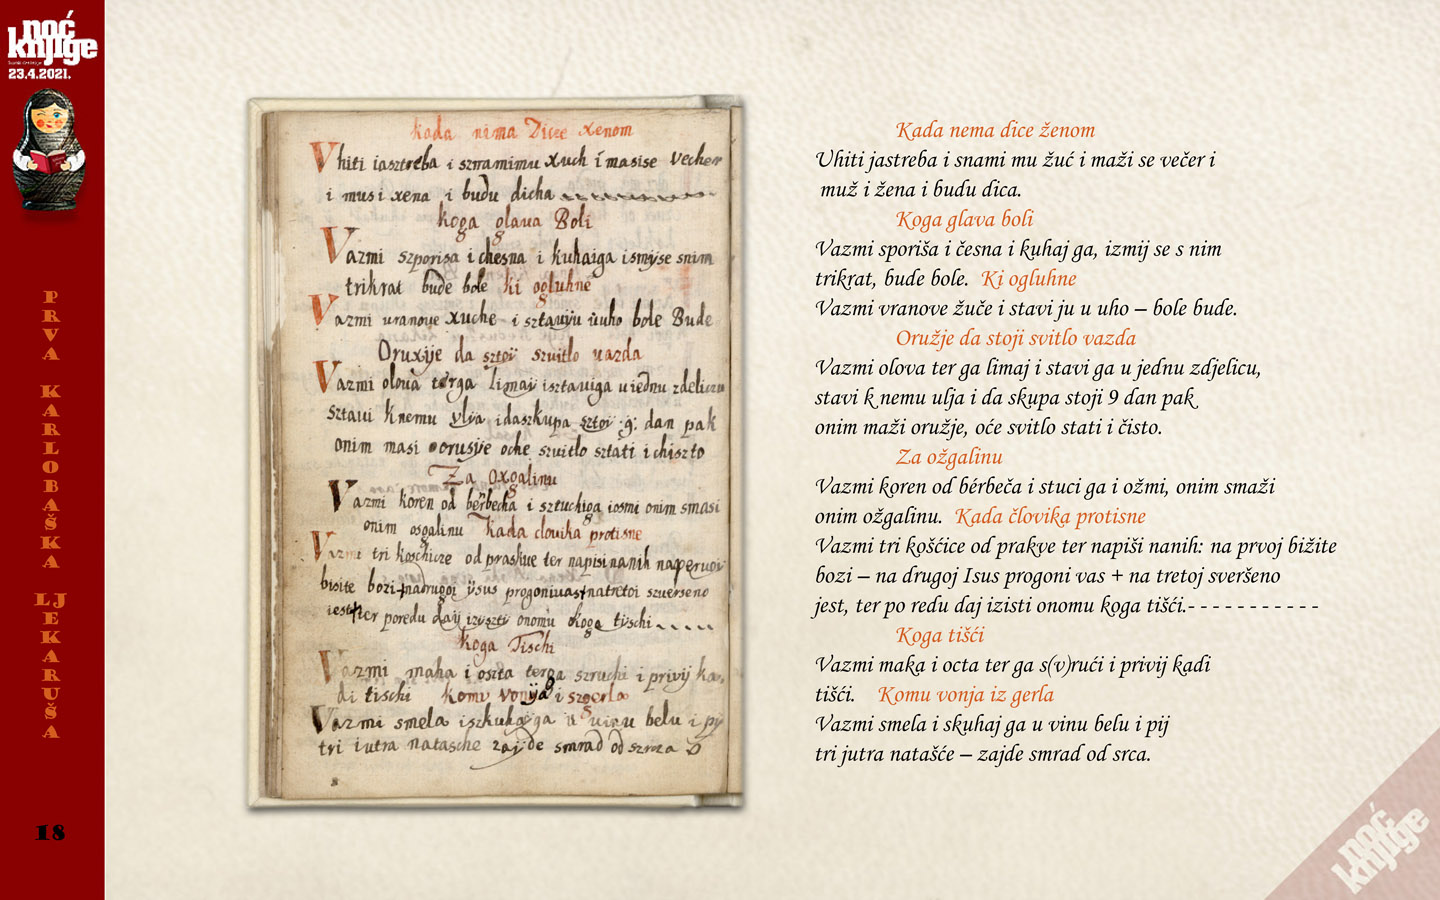 noć
knjige
23.4.2021.
PRVA KARLOBAŠKA LJEKARUŠA
18
kada nima Dicce xenom
Vhiti iasztreba i sznamimu xuch i masise vecher
i musi xena i budu dicha
koga glaua Boli
Vazmi szporisa i chesna i kuhaiga ismyse snim
trikrat bude bole ki ogluhne
Vazmi uranoue xuche i sztauiju ùuho bole Bude
Oruxije da sztoÿ szuitlo uazda
Vazmi oloua terga limaÿ isztauiga u iednu zdeliczu
sztaui knemu ylÿa idaszkupa sztoÿ 9: dan pak
onim masi orusye oche szuitlo sztati i chiszto
Za Oxgalinu
Vazmi koren od berbecha i sztuchiga iosmi onim smasi
onim osgalinu kada clouika protisne
Vazmi tri koschicze od praskue ter napisi nanih naperuoi
bisite bozi + nadrugoi ÿsus progoniuas + natretoi szuerseno
iest + ter poredu daÿ izyszti onomu koga tischi
koga Tischi
Vazmi maha i oszta terga szruchi i privij ka
di tischi komu vonya i szgerla
Vazmi smela iszkuhayga u uinu belu i pÿ
tri iutra natasche zayde smrad od szrcza
8
Kada nema dice ženom
Uhiti jastreba i snami mu žuć i maži se večer i
muž i žena i budu dica.
Koga glava boli
Vazmi sporiša i česna i kuhaj ga, izmij se s nim
trikrat, bude bole. Ki ogluhne
Vazmi vranove žuče i stavi ju u uho – bole bude.
Oružje da stoji svitlo vazda
Vazmi olova ter ga limaj i stavi ga u jednu zdjelicu,
stavi k nemu ulja i da skupa stoji 9 dan pak
onim maži oružje, oće svitlo stati i čisto.
Za ožgalinu
Vazmi koren od bérbeča i stuci ga i ožmi, onim smaži
onim ožgalinu. Kada človika protisne
Vazmi tri košćice od prakve ter napiši nanih: na prvoj bižite
bozi – na drugoj Isus progoni vas + na tretoj sveršeno
jest, ter po redu daj izisti onomu koga tišći.- - - - - - - - - - -
Koga tišći
Vazmi maka i octa ter ga s(v)rući i privij kadi
tišći. Komu vonja iz gerla
Vazmi smela i skuhaj ga u vinu belu i pij
tri jutra natašće – zajde smrad od srca.
noć
knjige